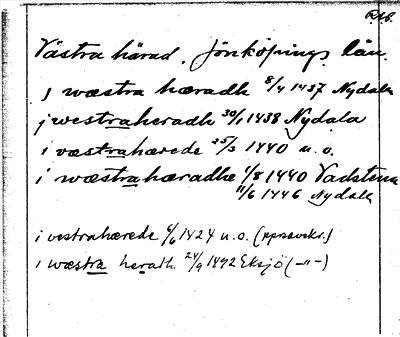 Västra härad. Jönköpings län.
j wæstra hæradh 8/4 1437 Nydala
j westraheradh 30/1 1438 Nydala
i væstrahærede 25/3 1440 u.o.
i wæstrahæradhe 1/8 1440 Vadstena
11/6 1446 Nydala
i vestrahærede 6/6 1424 u.o. (pprsavskr.)
i wæstra herath 24/9 1492 Eksjö (-"-)